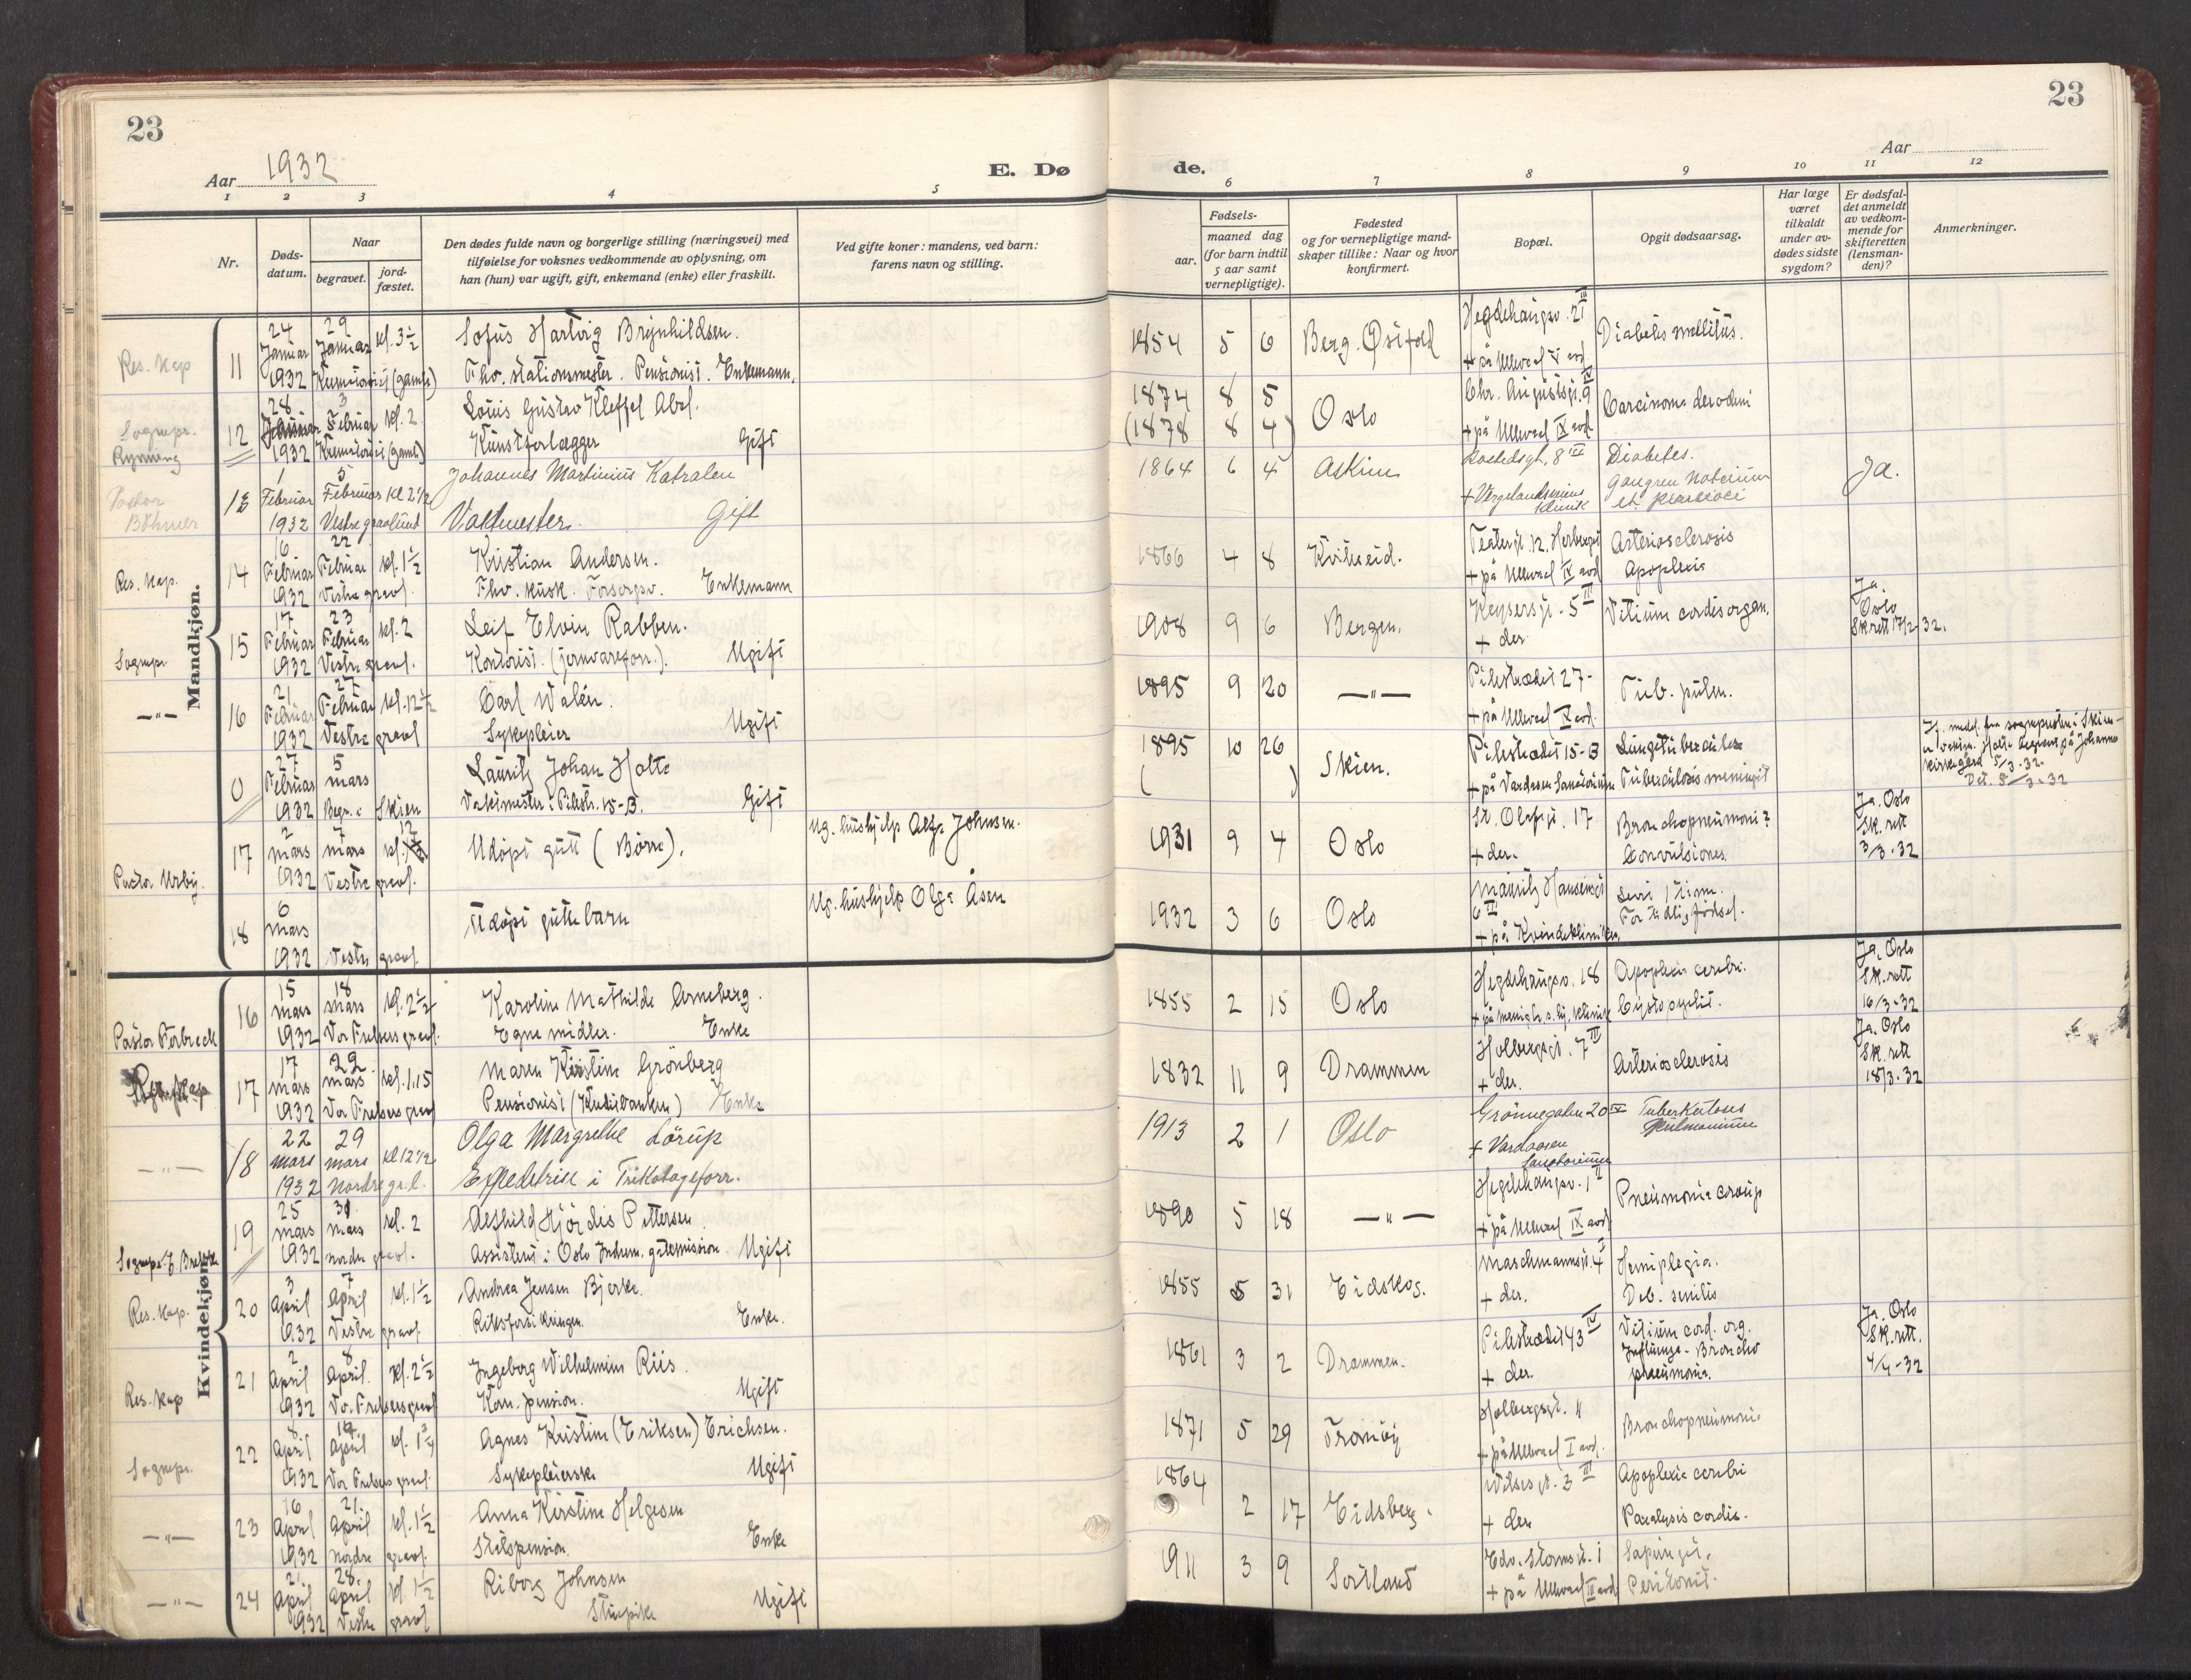 23
23
Aar 1932
E. Dø
de.
Aar
1
2
3
4
5
6
7
8
9
10
11
12
Nr.
Døds-
datum.
Naar
begravet.
jord-
fæstet.
Den dødes fulde navn og borgerlige stilling (næringsvei) med
tilføielse for voksnes vedkommende av oplysning, om
han (hun) var ugift, gift, enkemand (enke) eller fraskilt.
Ved gifte koner: mandens, ved barn:
farens navn og stilling.
Fødsels-
aar.
maaned dag
(for barn indtil
5 aar samt
vernepligtige).
Fødested
og for vernepligtige mand-
skaper tillike: Naar og hvor
konfirmert.
Bopæl.
Opgit dødsaarsag.
Har læge
været
tilkaldt
under av-
dødes sidste
sygdom?
Er dødsfal-
det anmeldt
av vedkom-
mende for
skifteretten
(lensman-
den)?
Anmerkninger.
Mandkjøn.
Res. Kap
11
24 Januar 1932
29 Januar kl. 3½
Krematoriet (gamle)
Sofus Hartvig Brynhildsen.
Fhv. stationsmester. Pensionist. Enkemann.
1854 5 6
Berg. Østfold
Hegdehaugsv. 2 III
+ på Ullevaal V avd.
Diabetes mellitus.
Sognepr.
12
28 Januar 1932
3 Februar kl. 2
Krematoriet (gamle)
Louis Gustav Kleffel Abel.
Kunstforlægger Gift
1874 8 5
(1878 8 4)
Oslo
Chr. Augustsgt. 9 IV
+ på Ullevaal IX avd
Carcinoma
Pastor
Böhmer
13
1 Februar 1932
5 Februar kl 2½
Vestre gravlund
Johannes Martinius Katralen
Vaktmester. Gift
1864 6 4
Askim
8 III
+ Vergelandsveiens
klinik
Diabetes.
Ja.
Res. Kap.
14
16 Februar 1932
22 Februar kl. 1½
Vestre gravl.
Kristian Andersen.
Fhv. kusk. Forsorgsv. Enkemann
1866 4 8
Kviteseid.
Teatergt. 12. Herberget
+ på Ullevaal IV avd
Arteriosclerosis
Apoplexia
Sognepr.
15
17 Februar 1932
23 Februar kl. 2
Vestre gravl.
Leif Elvin Rabben.
Kontorist. (jernvareforr.). Ugift
1908 9 6
Bergen.
Keysersgt. 5 III
+ der.
Vitium cordis organ.
Ja.
Oslo
Sk.rett 17/2 32.
—"—
16
21 Februar 1932
27 Februar kl. 12½
Vestre gravl
Carl Walén.
Sykepleier Ugift
1895 9 20
—"—
Pilestrædet 27-
+ på Ullevaal IX avd.
Tub. pulm.
0
27 Februar 1932
5 mars
Begr. i Skien
Lauritz Johan Holte
Vaktmester i Pilestr. 15-B. Gift
1895 10 26
( )
Skien.
Pilestrædet 15-B
+ på Vardaasen Sanatorium
Lungetuberculose
Tuberculøs meningit
Ifg. medd. fra sognepresten i Skien
Holte begravet på Johannes
kirkegård 5/3.32.
Pastor Urbÿ.
17
2 mars 1932
7 mars kl. 12
Vestre gravl.
Udöpt gutt (Börre).
Ug. hushjelp Johnsen.
1931 9 4
Oslo
St. Olafsgt. 17
+ der.
Bronchopneumoni?
Convulsiones.
Ja. Oslo
Sk. rett
3/3-32
18
6 mars 1932
Vestre gravl.
Udöpt guttebarn
Ug. hushjelp Olga Åsen
1932 3 6
Oslo
Mauritz Hansensgt
6 III
+ på Kvindeklinikken.
Levet 1 time.
For tidlig födsel.
Kvindekjøn.
Pastor Førbreck
16
15 mars 1932
18 mars kl. 2½
Vor Frelsers gravl.
Karoline Mathilde Arneberg.
Egne midler. Enke
1855 2 15
Oslo
Hegdehaugsv. 18
+ på menigh. s. hj. klinik
Apoplexia cerebri.
Cystopyelit.
Ja. Oslo
Sk. rett
16/3-32
17
17 mars 1932
22 mars kl. 1.15
Vor Frelsers gravl
Maren Kirstine Grönberg
Pensionist Enke
1832 11 9
Drammen
Holbergsgt. 7 III
+ der.
Arteriosclerosis
Ja. Oslo
Sk. rett
18/3-32
—"—
18
22 mars 1932
29 mars kl 12½
Nordre gr.l.
Olga Margrethe Lörup
Expeditrise i Trikotageforr.
1913 2 1
Oslo
Grönnegaten 20 IV
+ Vardaasen
Sanatorium
Tuberkulosis
Pulmonum
Sognepr.
19
25 mars 1932
31 mars kl. 2
nordre gravl.
Alfhild Hjördis Pettersen.
Assistent i Oslo Indrem. gatemission Ugift
1890 5 18
—"—
Hegdehaugsv. 1 II
+ på Ullevaal IX avd
Pneumonia croup
Res. Kap.
20
3 April 1932
7 April kl. 1½
Vestre gravl.
Andrea Jensen Bjerke.
Riksforsikringen. Enke.
1855 5 31
Eidskog.
Maschmannsgt. 4
+ der.
Hemiplegia.
Deb. senilis
Res. Kap
21
2 April 1932
8 April. kl. 2½
Vor Frelsers gravl
Ingeborg Wilhelmine Riis.
Kom. pension. Ugift
1861 3 2
Drammen.
Pilestrædet 43 IV
+ der.
Vitium cord. org.
Influenza - Broncho
pneumonia.
Ja. Oslo
Sk. rett.
4/4-32
Sognepr.
22
8 April 1932
14 April kl. 1¾
Vor Frelsers gravl.
Agnes Kristine (Eriksen) Erichsen.
Sykepleierske Ugift
1871 5 29
Tromöy
Holbergsgt. 11
+ på Ullevaal I avd.
Bronchopneumoni.
—"—
23
16 April 1932
21. April kl. 1½
Nordre gravl.
Anna Kirstine Helgesen
Statspension. Enke
1864 2 17
Eidsberg.
Wilsesgt. 3 III
+ der
Apoplexia cerebri
Paralysis cordis.
—"—
24
21 April 1932
28. April kl. 1½
Vestre gravl
Riborg Johnsen
Stuepike Ugift
1911 3 9
Sortland
Edv. Stormsgt. 1
+ på Ullevaal III avd
Salpingit.
Peritonit.